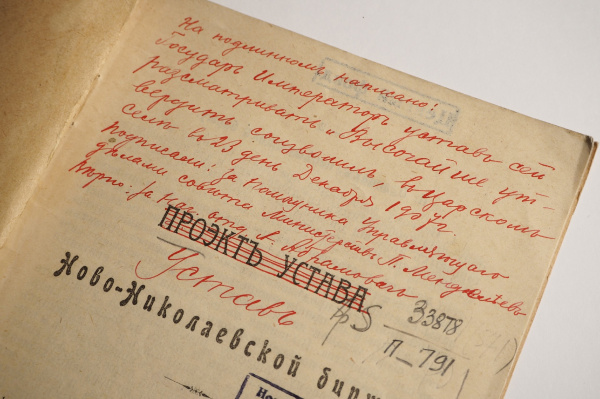 На подлинномъ написано:
Государь Императоръ уставъ сей
разсматривать и Высочайше ут-
вердить соизволилъ, въ Царскомъ
селѣ въ 23 день Декабря 1907 г.
Подписали: За Помощника Управляющаго
дѣлами совѣта Министровъ П. Менделѣевъ
Вѣрно: За Нач. отд. А. Абрамовъ
ПРОЭКТЪ УСТАВА
Уставъ
Ново-Николаевской бирж
33878
П-791